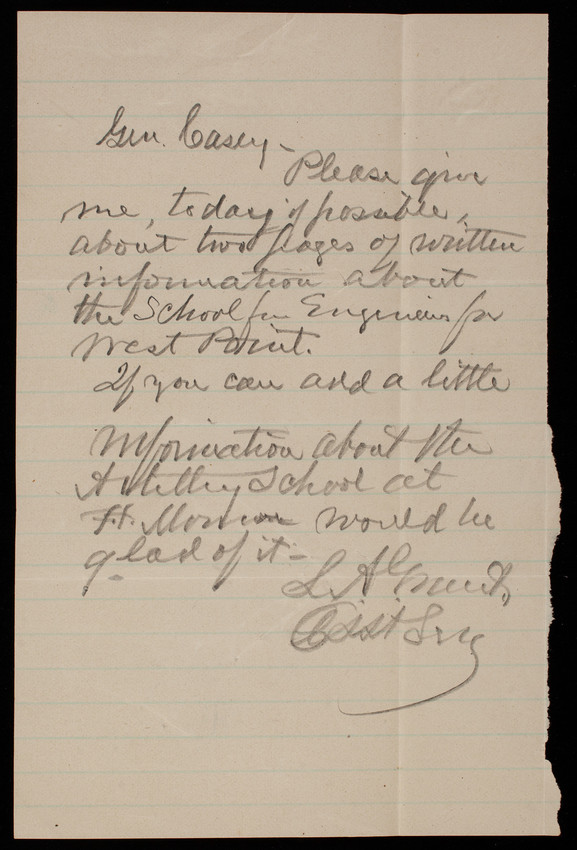 Gen. Casey -
Please give
me, today if possible,
about two pages of written
information about
the School for Engineers for
West Point.
If you can add a little
information about the
Artillery School at
Ft. Monroe would be
glad of it -
L. A. Grant,
Asst Secy